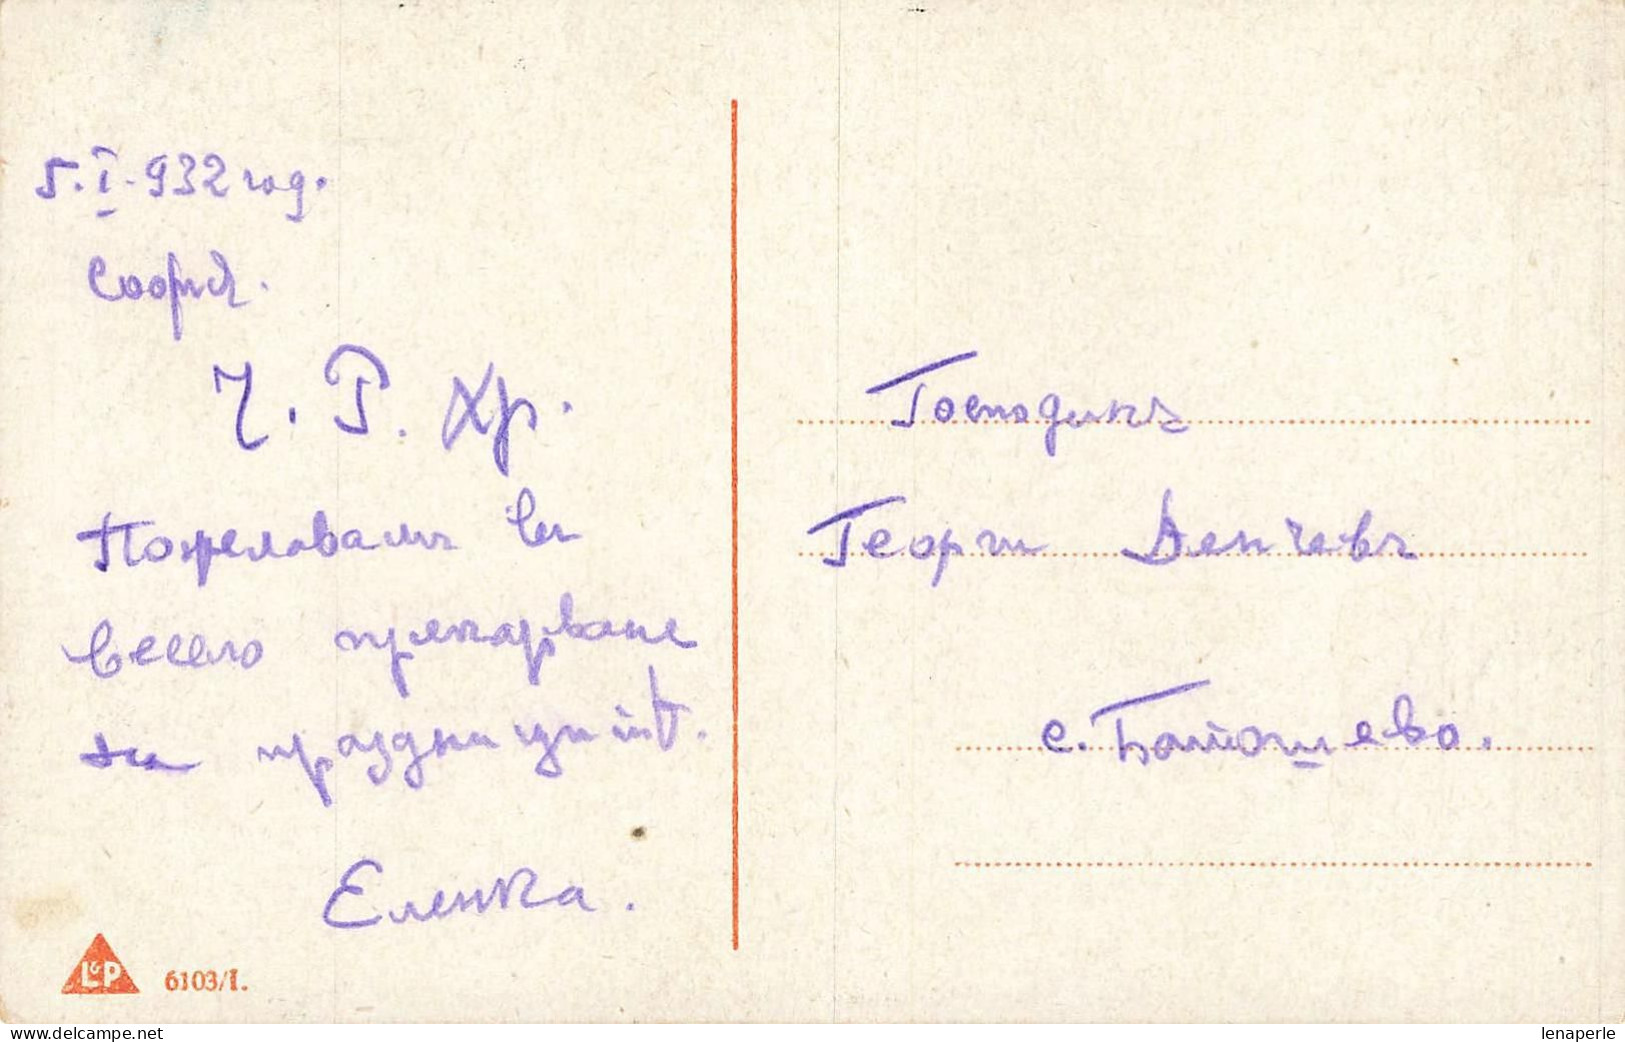 5.I.932 год.
София.
Ч. Р. Хр.
Пожелавамъ ви
весело прекарване
на празднициитѣ.
Еленка.
Господинъ
Георги Денчевъ
с. Батошево.
L&P 6103/I.
www.delcampe.net
lenaperle